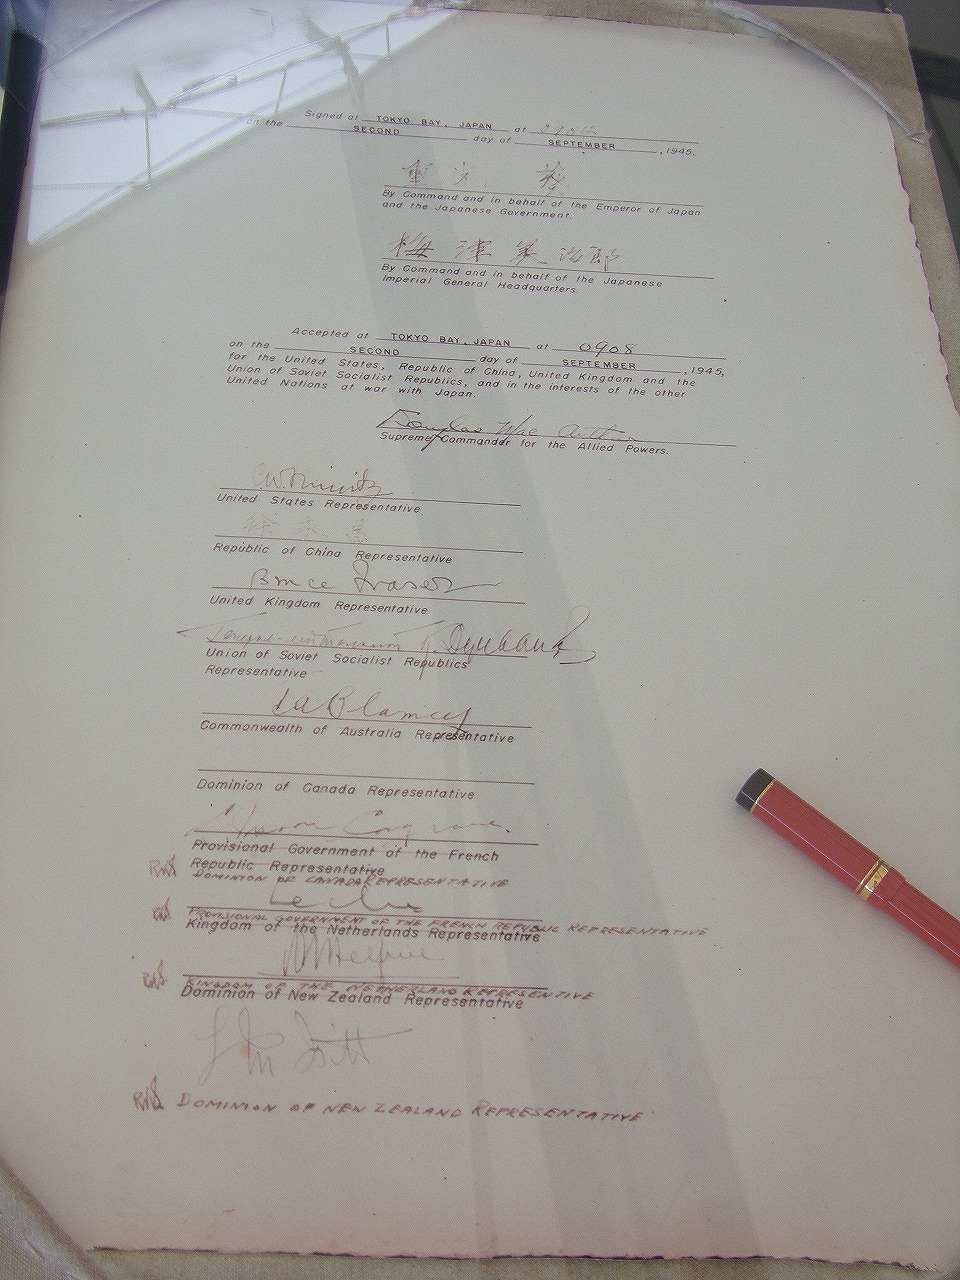 Signed at TOKYO BAY, JAPAN at
on the SECOND day of SEPTEMBER, 1945.
重光 葵
By Command and in behalf of the Emperor of Japan
and the Japanese Government.
梅津美治郎
By Command and in behalf of the Japanese
Imperial General Headquarters.
Accepted at TOKYO BAY, JAPAN at 0908
on the SECOND day of SEPTEMBER, 1945,
for the United States, Republic of China, United Kingdom and the
Union of Soviet Socialist Republics, and in the interests of the other
United Nations at war with Japan.
Douglas MacArthur
Supreme Commander for the Allied Powers.
C.W. Nimitz
United States Representative
徐永昌
Republic of China Representative
Bruce Fraser
United Kingdom Representative
Union of Soviet Socialist Republics
Representative
T A Blamey
Commonwealth of Australia Representative
Dominion of Canada Representative
Provisional Government of the French
Republic Representative
DOMINION OF CANADA REPRESENTATIVE
Leclerc
PROVISIONAL GOVERNMENT OF THE FRENCH REPUBLIC REPRESENTATIVE
Kingdom of the Netherlands Representative
Helfrich
KINGDOM OF THE NETHERLANDS REPRESENTATIVE
Dominion of New Zealand Representative
L M Isitt
DOMINION OF NEW ZEALAND REPRESENTATIVE